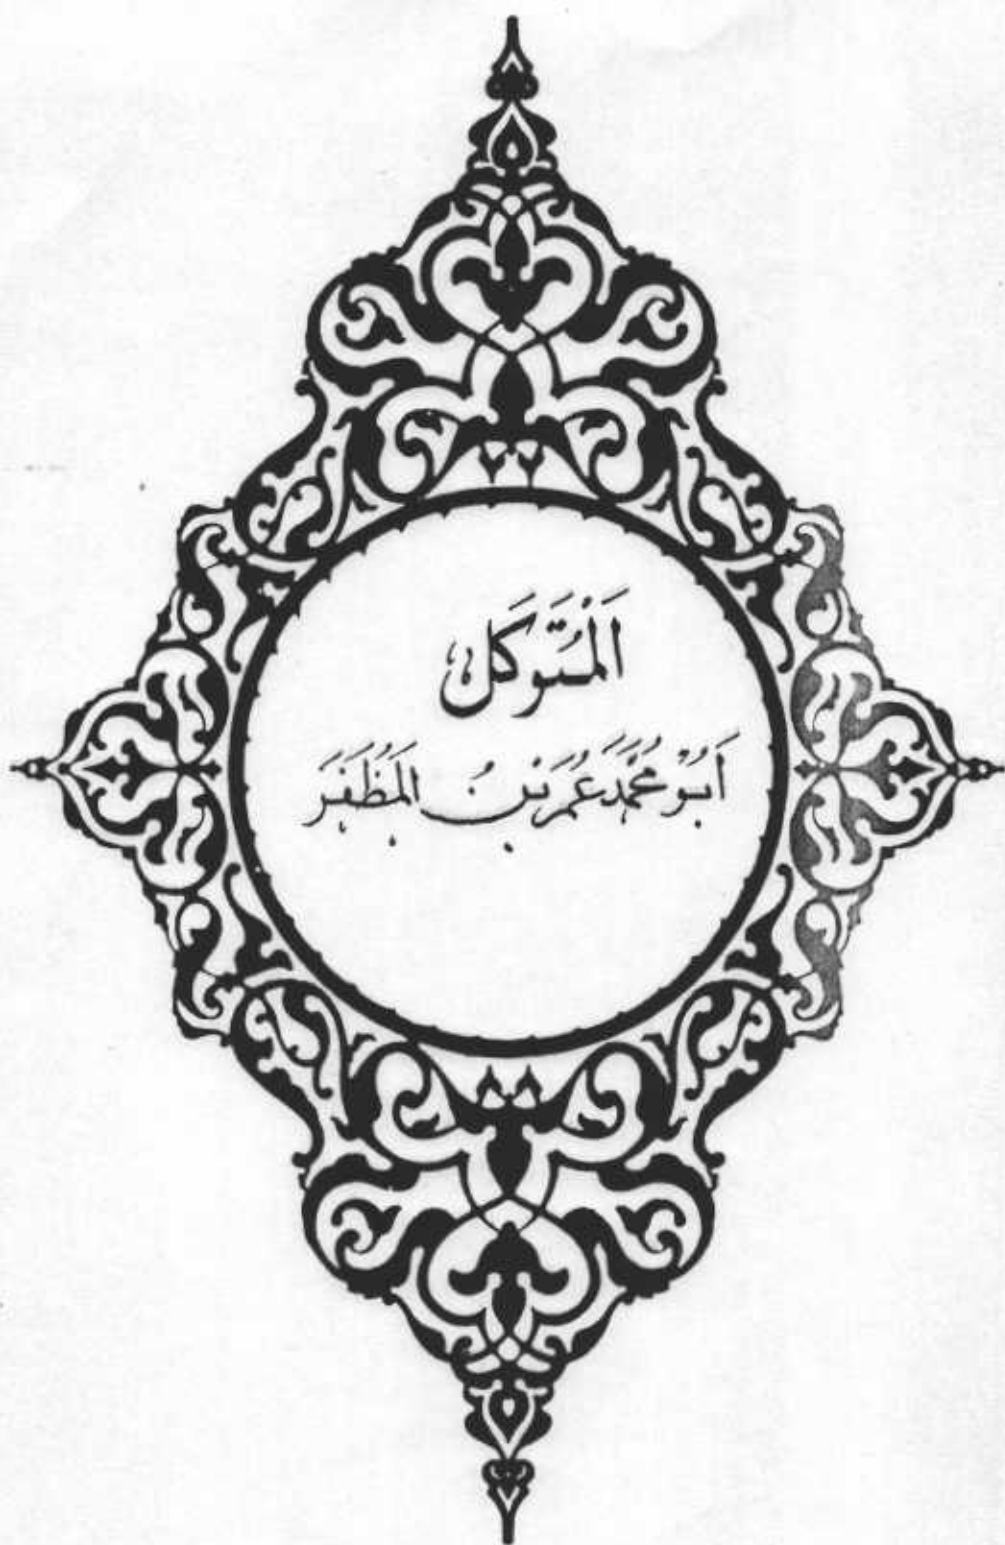 اَلْمُتَوَكِّل
أَبُو مُحَمَّد عُمَر بنُ المُظَفَّر